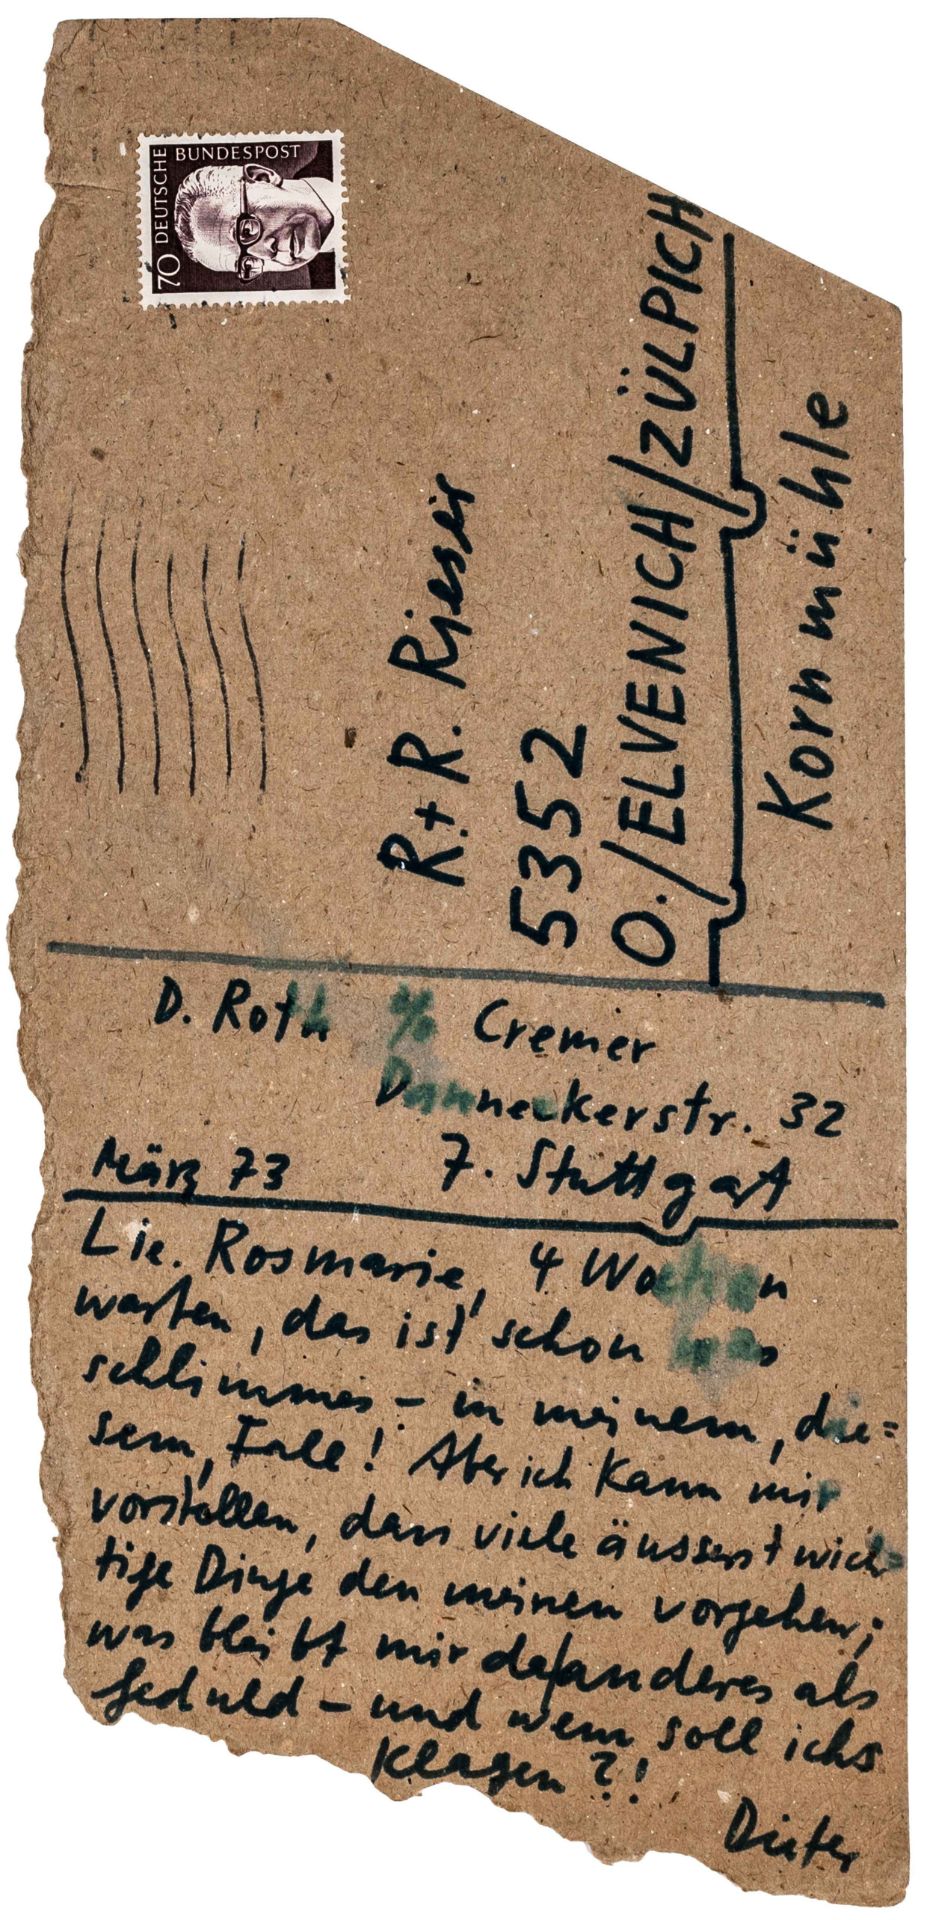 DEUTSCHE BUNDESPOST
70
R.+R. Rieser
5352
O./ELVENICH/ZÜLPICH
Kornmühle
D. Roth c/o Cremer
Danneckerstr. 32
März 73 7. Stuttgart
Lie. Rosmarie, 4 Wochen
warten, das ist schon was
schlimmes – in meinem, die=
sem, Falle! Aber ich kann mir
vorstellen, dass viele äusserst wich=
tige Dinge den meinen vorgehen;
was bleibt mir da/anderes als
Geduld – und wem soll ichs
klagen?!
Dieter